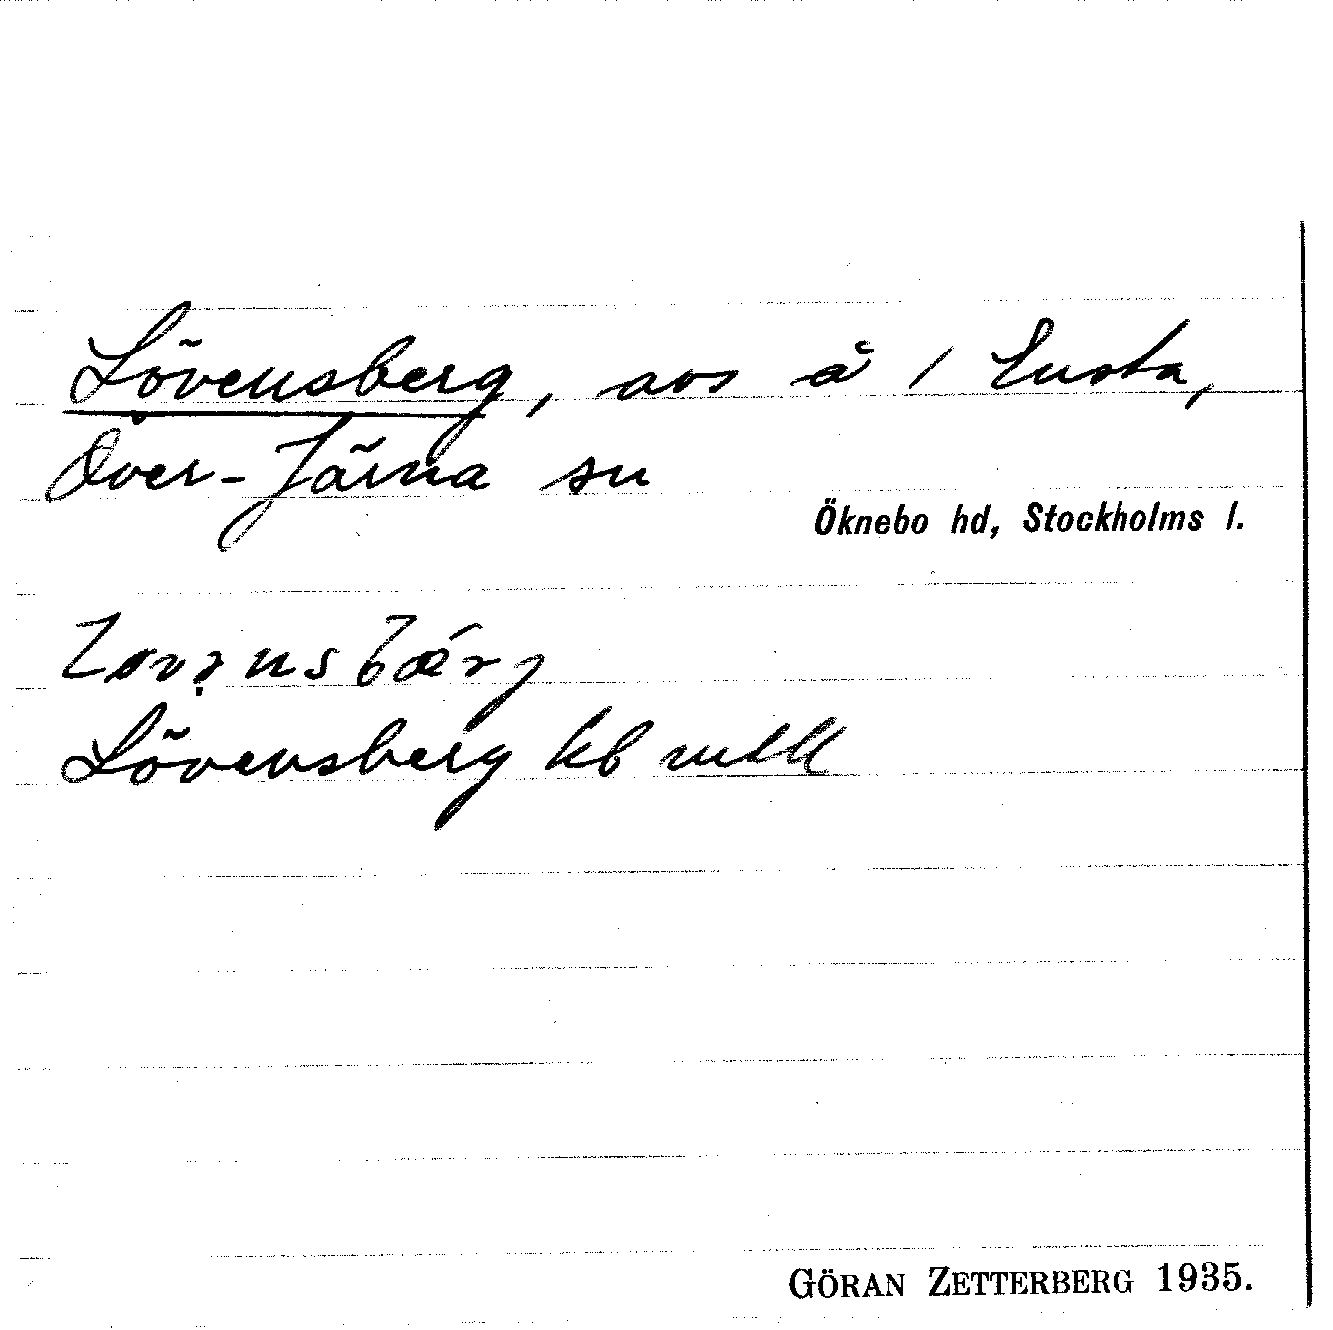 Lövensberg, avs å 1 Ensta,
Över-Järna sn
Öknebo hd, Stockholms l.
Lövensberg kb
GÖRAN ZETTERBERG 1935.